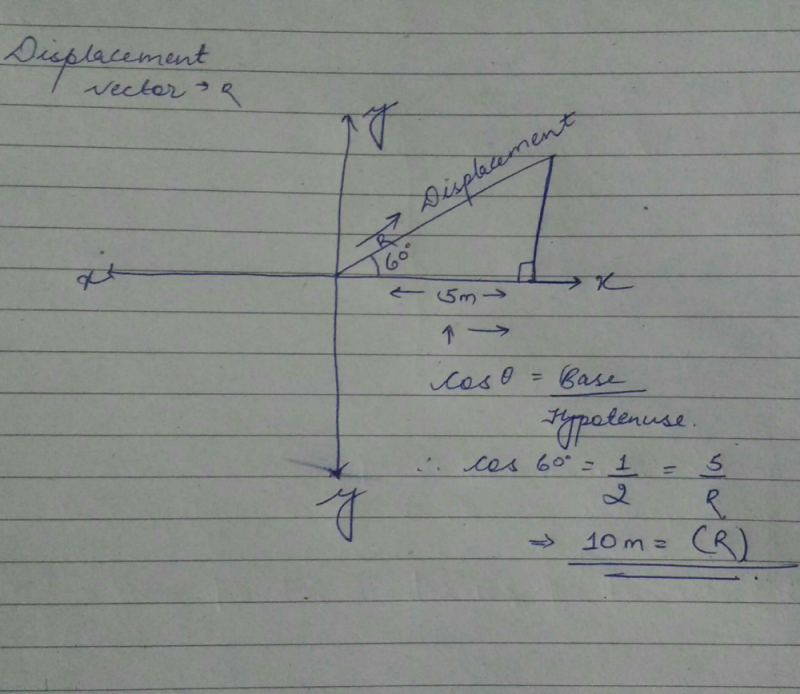 Displacement
vector → R
y
Displacement
R
60°
x
x
← 5m →
↑ →
cos θ = Base
Hypotenuse.
∴ cos 60° = 1/2 = 5/R
y
⇒ 10m = (R)